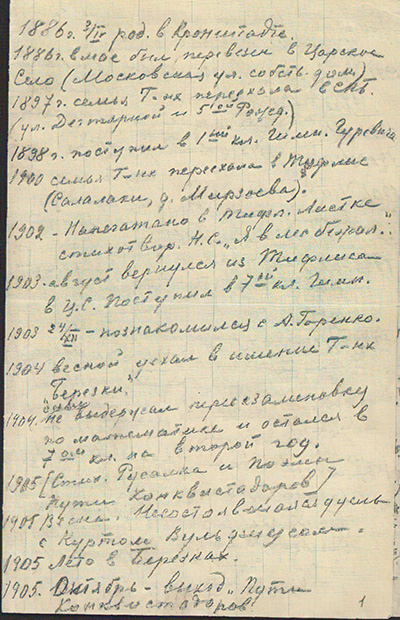 1886 г. 3/IV род. в Кронштадте.
1886 г. в мае был перевезен в Царское
Село (Московская ул. собств. дом)
1897 г. семья Г-ых переехала в СПБ.
(ул. Дегтярной и 5ой Рожд.)
1898 г. поступил в 1ый кл. Гимн. Гуревича
1900 семья Г-ых переехала в Тифлис
(Салалаки, д. Мирзоева).
1902 - Напечатано в "Тифл. Листке"
стихотвор. Н.С. „Я в лес бежал..."
1903. август вернулся из Тифлиса
в Ц.С. Поступил в 7ой кл. Гимн.
1903 24/XII - познакомился с А. Горенко.
1904 весной уехал в имение Г-ых
„Березки"
1904. не выдержал переэкзаменовку
по математике и остался в
7ом кл. на второй год.
1905 [Стих. Русалка и Поэмы
Пути Конквистадоров]
1905 Несостоявшаяся дуэль
с Куртом Вульфиусом.
1905 Лето в Березках.
1905. Октябрь - выход „Пути
Конквистадоров"
1